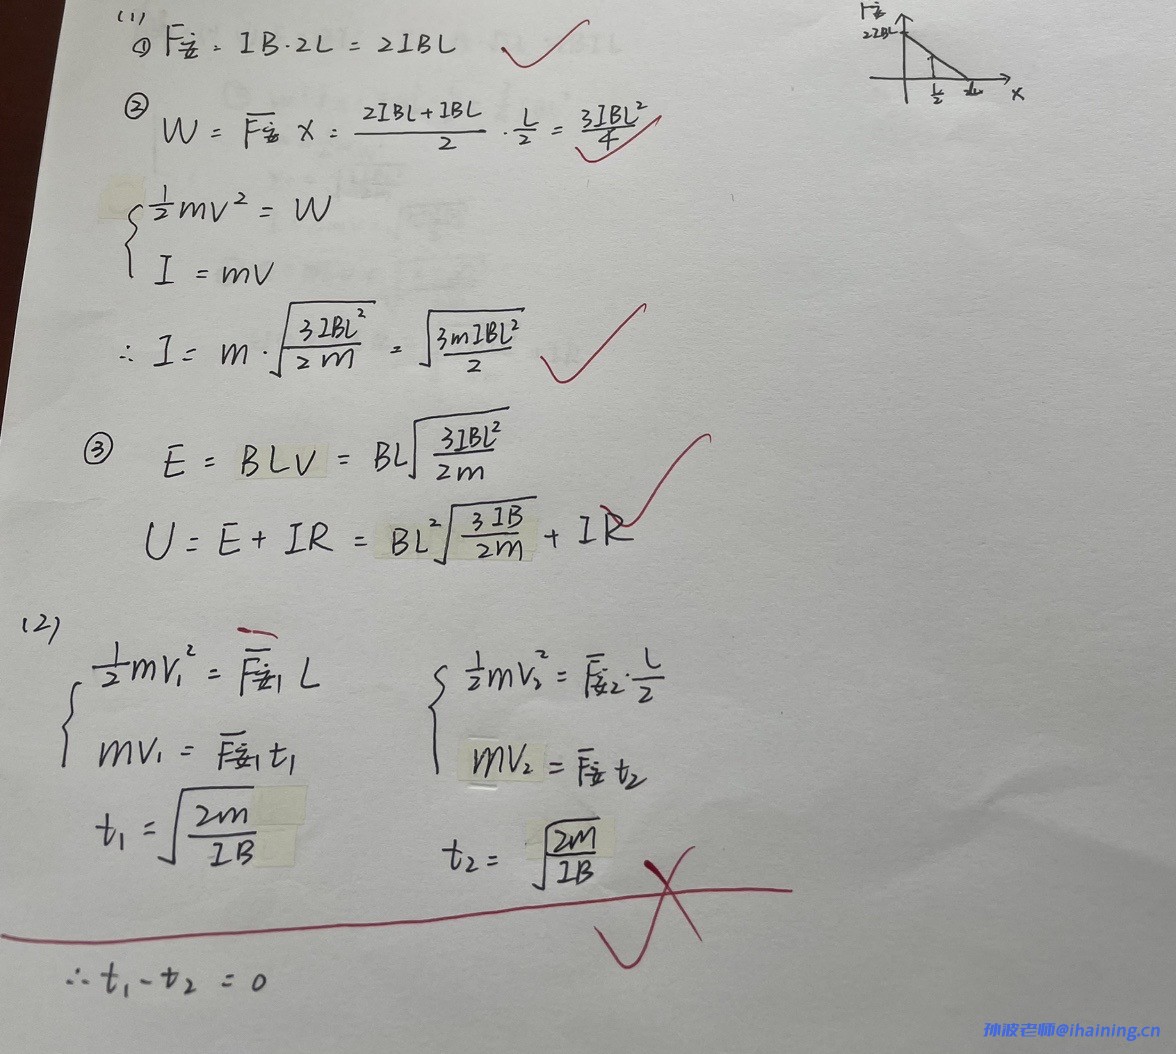 (1)
① F安 = IB·2L = 2IBL
② W = F̅安 x = (2IBL+IBL)/2 · L/2 = 3IBL²/4
{ ½mv² = W
I = mv
∴ I = m·√(3IBL²/2m) = √(3mIBL²/2)
③ E = BLV = BL√(3IBL²/2m)
U = E + IR = BL²√(3IB/2m) + IR
(2)
{ ½mv₁² = F̅安₁ L
mv₁ = F̅安₁ t₁
t₁ = √(2m/IB)
{ ½mv₂² = F̅安₂·L/2
mv₂ = F̅安 t₂
t₂ = √(2m/IB)
∴ t₁ - t₂ = 0
F安
2IBL
L/2
x
孙波老师@ihaining.cn